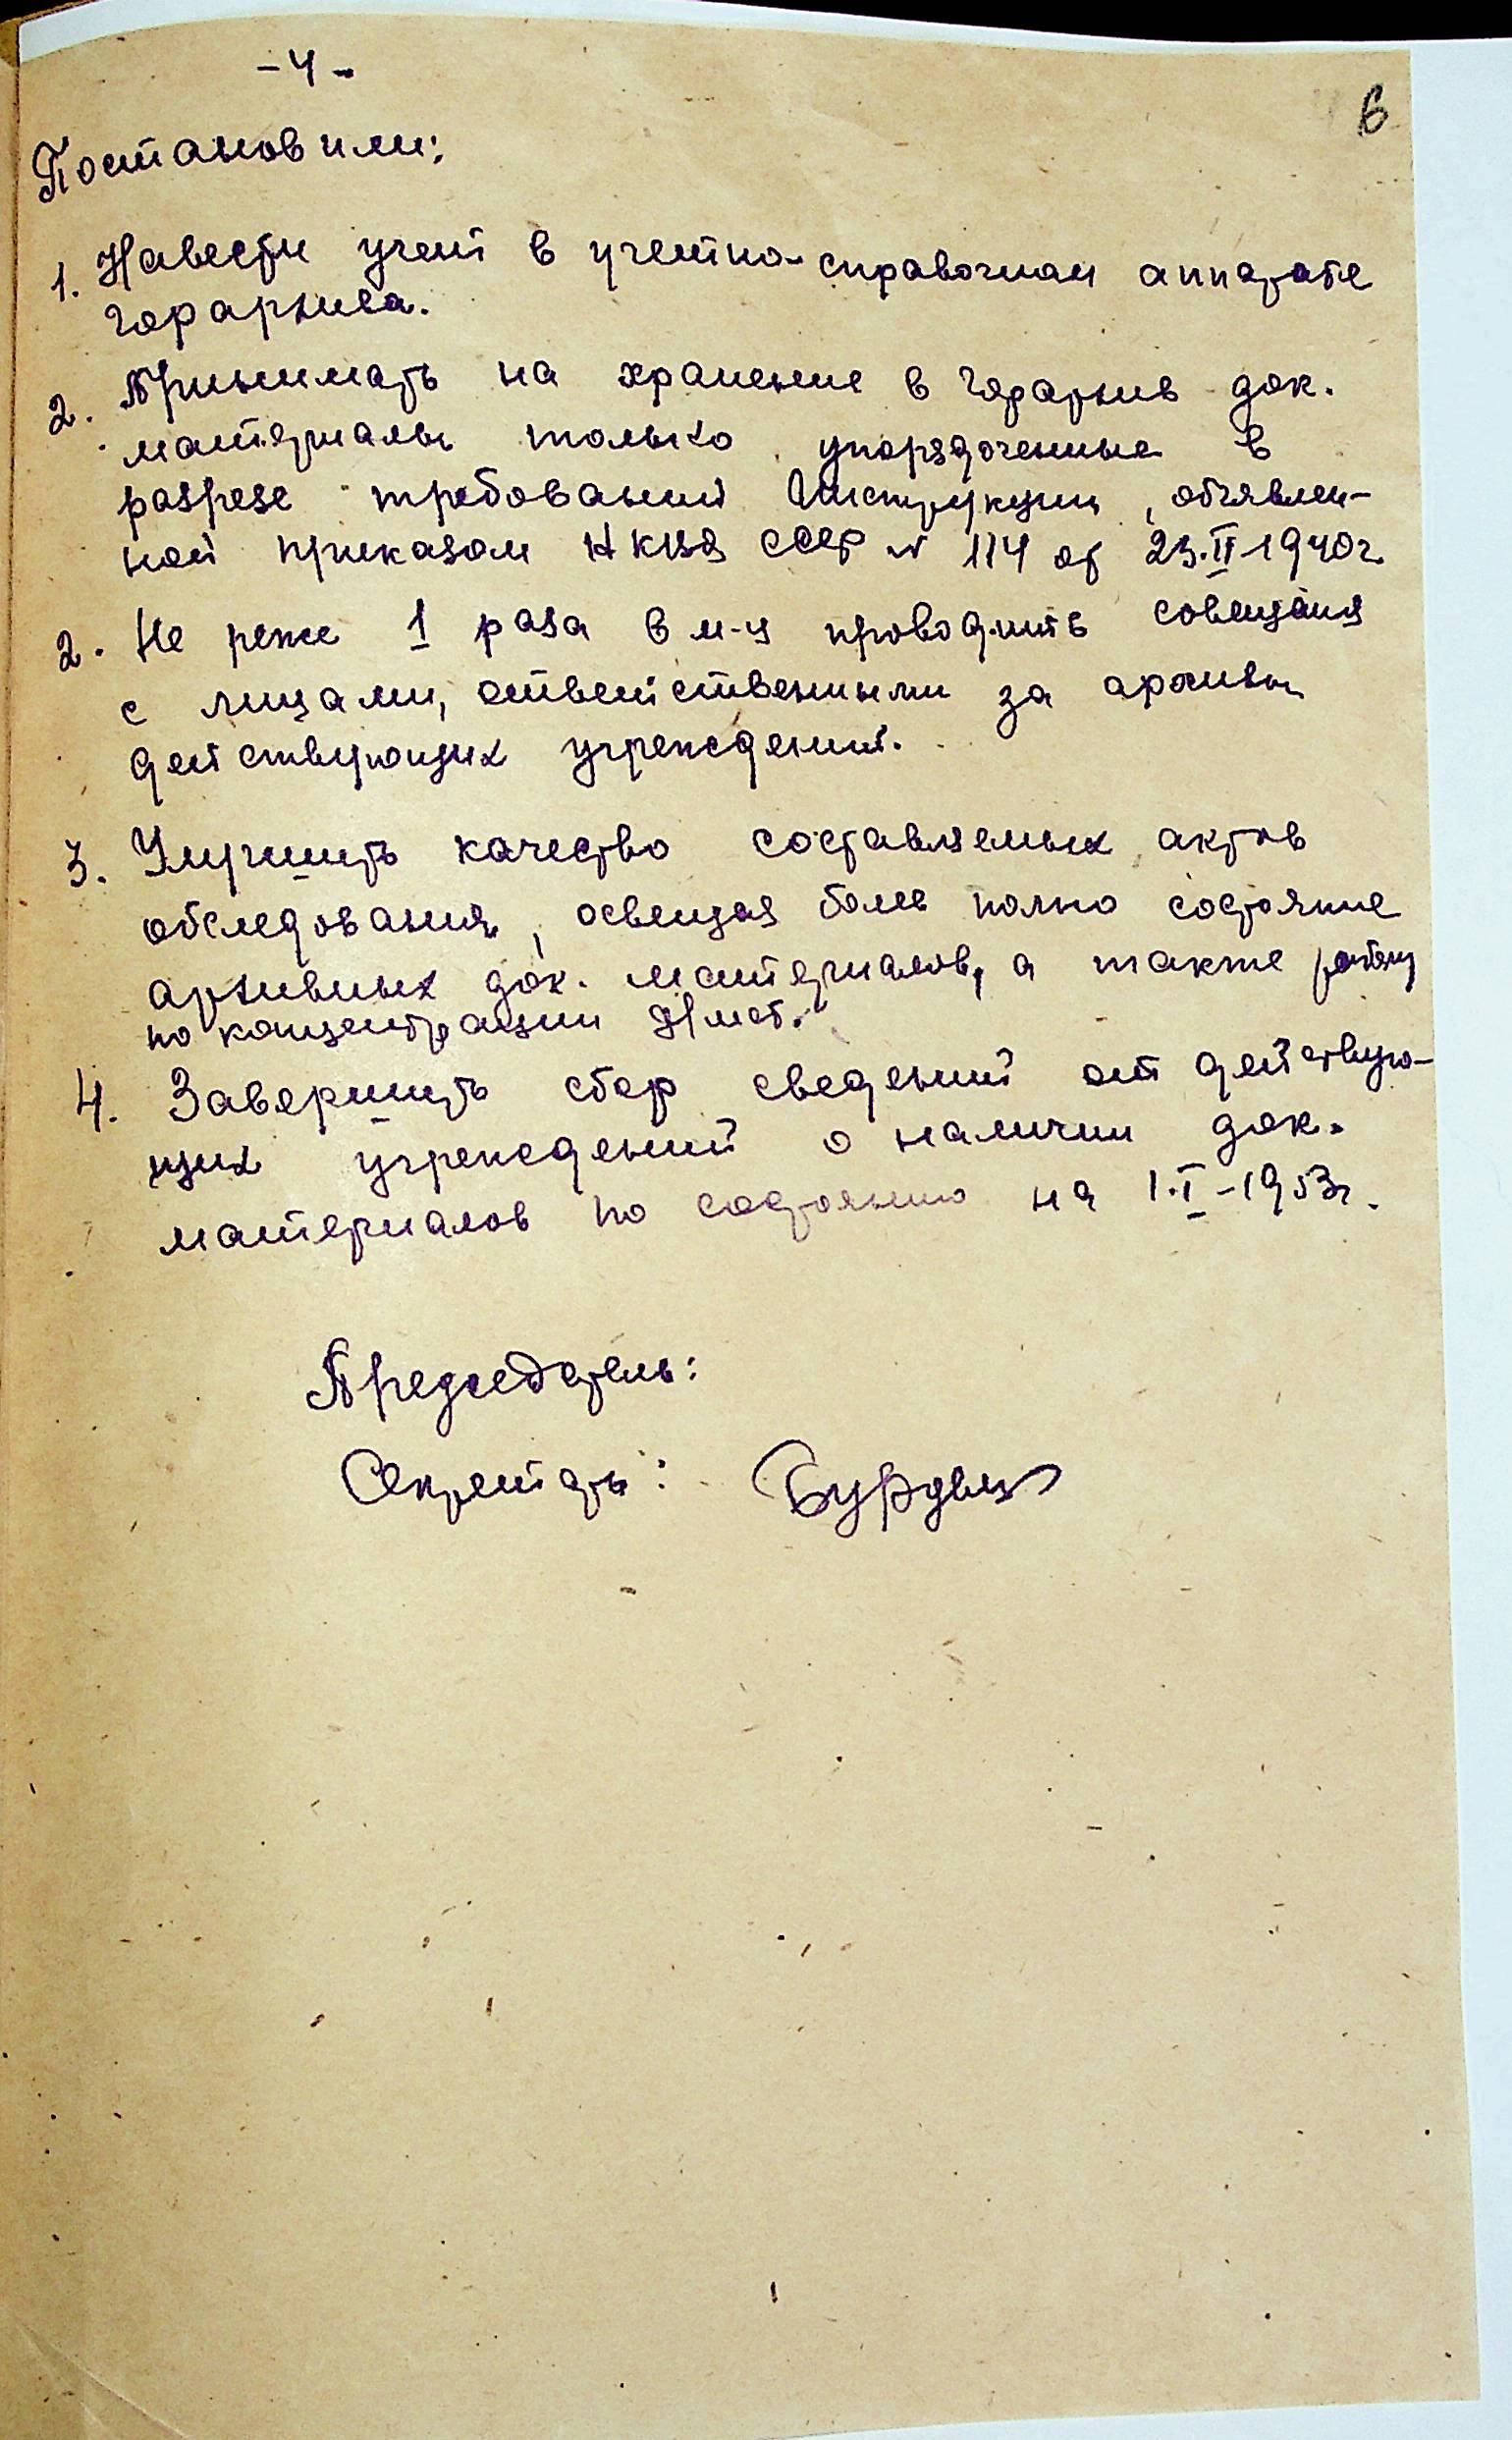 - 4 -
6
Постановили:
1. Навести учет в учетно-справочном аппарате
горархива.
2. Принимать на хранение в горархив док.
материалы только упорядоченные в
разрезе требований Инструкции, объявлен-
ной приказом НКВД СССР № 114 от 23.II-1940г.
2. Не реже 1 раза в м-ц проводить совещания
с лицами, ответственными за архивы
действующих учреждений.
3. Улучшить качество составляемых актов
обследования, освещая более полно состояние
архивных док. материалов, а также работу
по концентрации
4. Завершить сбор сведений от действую-
щих учреждений о наличии док.
материалов по состоянию на 1.I-1953г.
Председатель:
Секретарь: